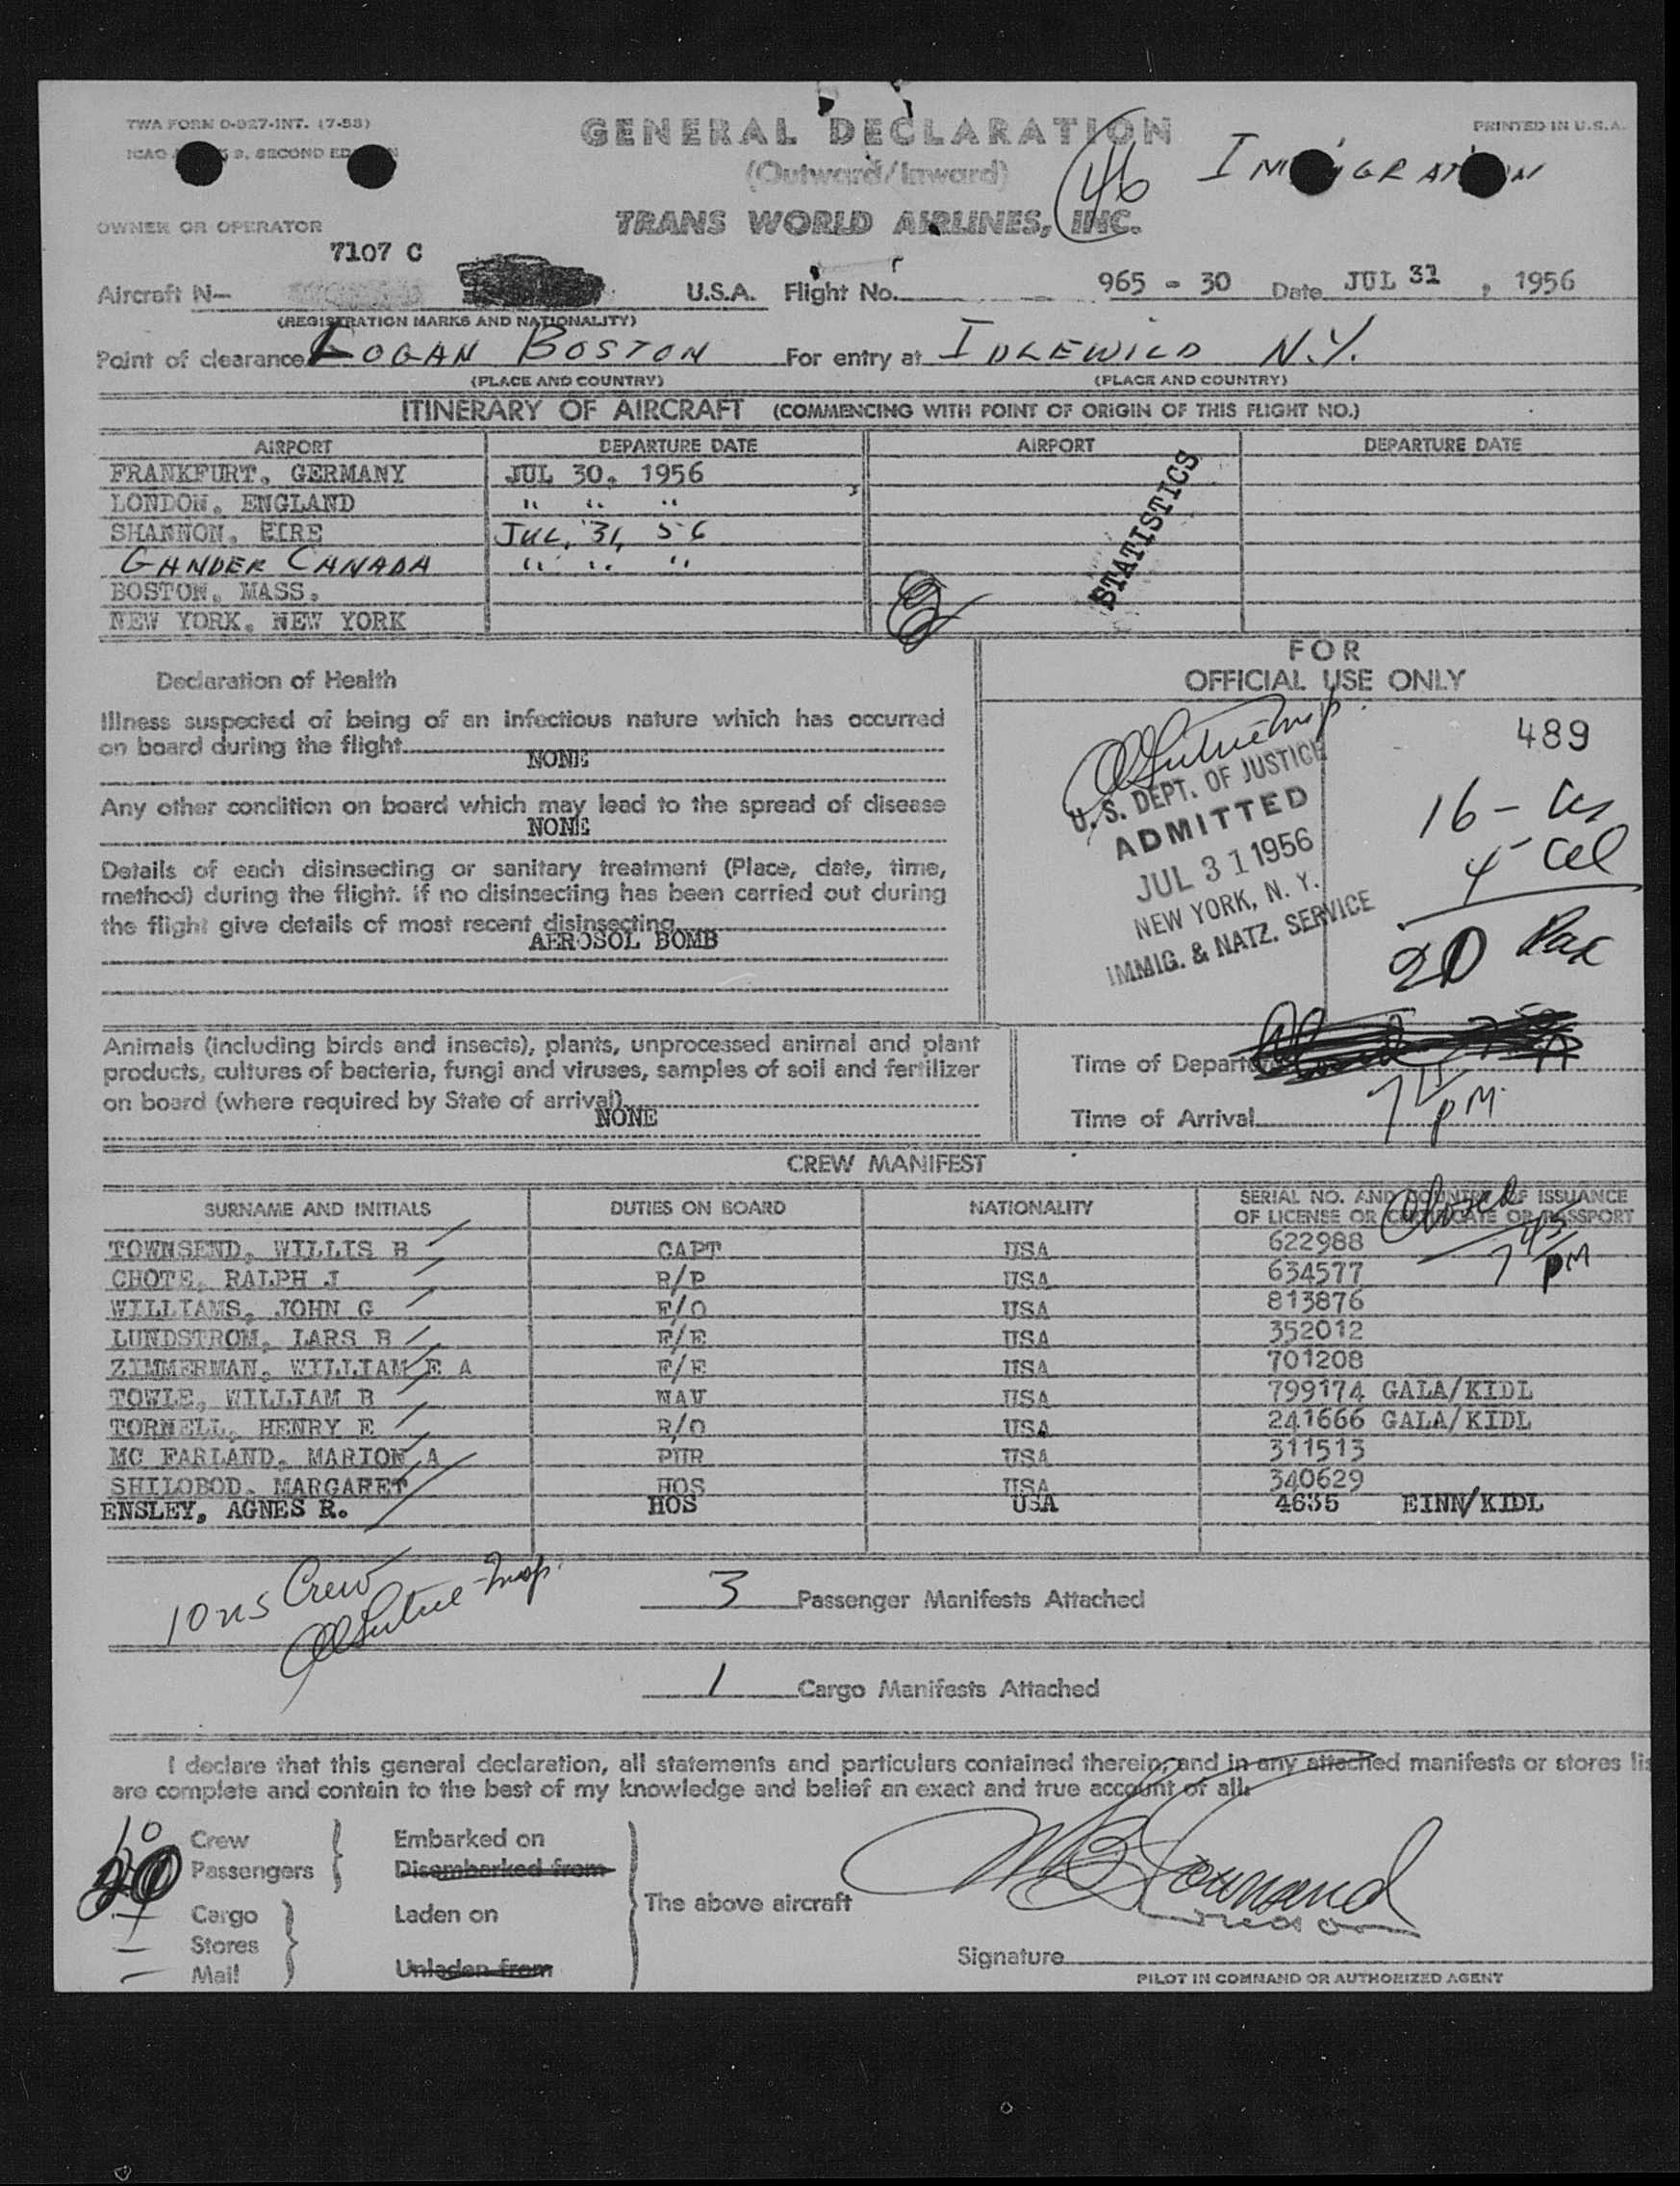 TWA FORM O-927-INT. (7-53)
GENERAL DECLARATION
PRINTED IN U.S.A.
9, SECOND
(Outward/Inward)
46
TRANS WORLD AIRLINES, INC.
OWNER OR OPERATOR
7107 C
Aircraft N— U.S.A. Flight No. 965 - 30 Date JUL 31, 1956
(REGISTRATION MARKS AND NATIONALITY)
Point of clearance LOGAN BOSTON For entry at IDLEWILD N.Y.
(PLACE AND COUNTRY) (PLACE AND COUNTRY)
ITINERARY OF AIRCRAFT (COMMENCING WITH POINT OF ORIGIN OF THIS FLIGHT NO.)
AIRPORT DEPARTURE DATE AIRPORT DEPARTURE DATE
FRANKFURT, GERMANY JUL 30, 1956
LONDON, ENGLAND " " "
SHANNON, EIRE JUL, 31, 56
GANDER CANADA " " "
BOSTON, MASS.
NEW YORK, NEW YORK
STATISTICS
Declaration of Health
Illness suspected of being of an infectious nature which has occurred
on board during the flight
NONE
Any other condition on board which may lead to the spread of disease
NONE
Details of each disinsecting or sanitary treatment (Place, date, time,
method) during the flight. If no disinsecting has been carried out during
the flight give details of most recent disinsecting
AEROSOL BOMB
FOR
OFFICIAL USE ONLY
489
U. S. DEPT. OF JUSTICE
ADMITTED
JUL 31 1956
NEW YORK, N. Y.
IMMIG. & NATZ. SERVICE
16 - us
4 - Cel
20 Pax
Animals (including birds and insects), plants, unprocessed animal and plant
products, cultures of bacteria, fungi and viruses, samples of soil and fertilizer
on board (where required by State of arrival)
NONE
Time of Departure
Time of Arrival
PM
CREW MANIFEST
SURNAME AND INITIALS DUTIES ON BOARD NATIONALITY SERIAL NO. AND COUNTRY OF ISSUANCE
OF LICENSE OR CERTIFICATE OR PASSPORT
Closed
7 45 PM
TOWNSEND, WILLIS B CAPT USA 622988
CHOTE, RALPH J R/P USA 634577
WILLIAMS, JOHN G F/O USA 813876
LUNDSTROM, LARS B F/E USA 352012
ZIMMERMAN, WILLIAM E A F/E USA 701208
TOWLE, WILLIAM B NAV USA 799174 GALA/KIDL
TORNELL, HENRY E R/O USA 241666 GALA/KIDL
MC FARLAND, MARION A PUR USA 311513
SHILOBOD, MARGARET HOS USA 340629
ENSLEY, AGNES R. HOS USA 4635 EINN/KIDL
10 us Crew
3 Passenger Manifests Attached
1 Cargo Manifests Attached
I declare that this general declaration, all statements and particulars contained therein, and in any attached manifests or stores
are complete and contain to the best of my knowledge and belief an exact and true account of all:
10 Crew Embarked on
20 Passengers Disembarked from
The above aircraft
Cargo Laden on
Stores
Mail Unladen from
WB Townsend
Signature
PILOT IN COMMAND OR AUTHORIZED AGENT